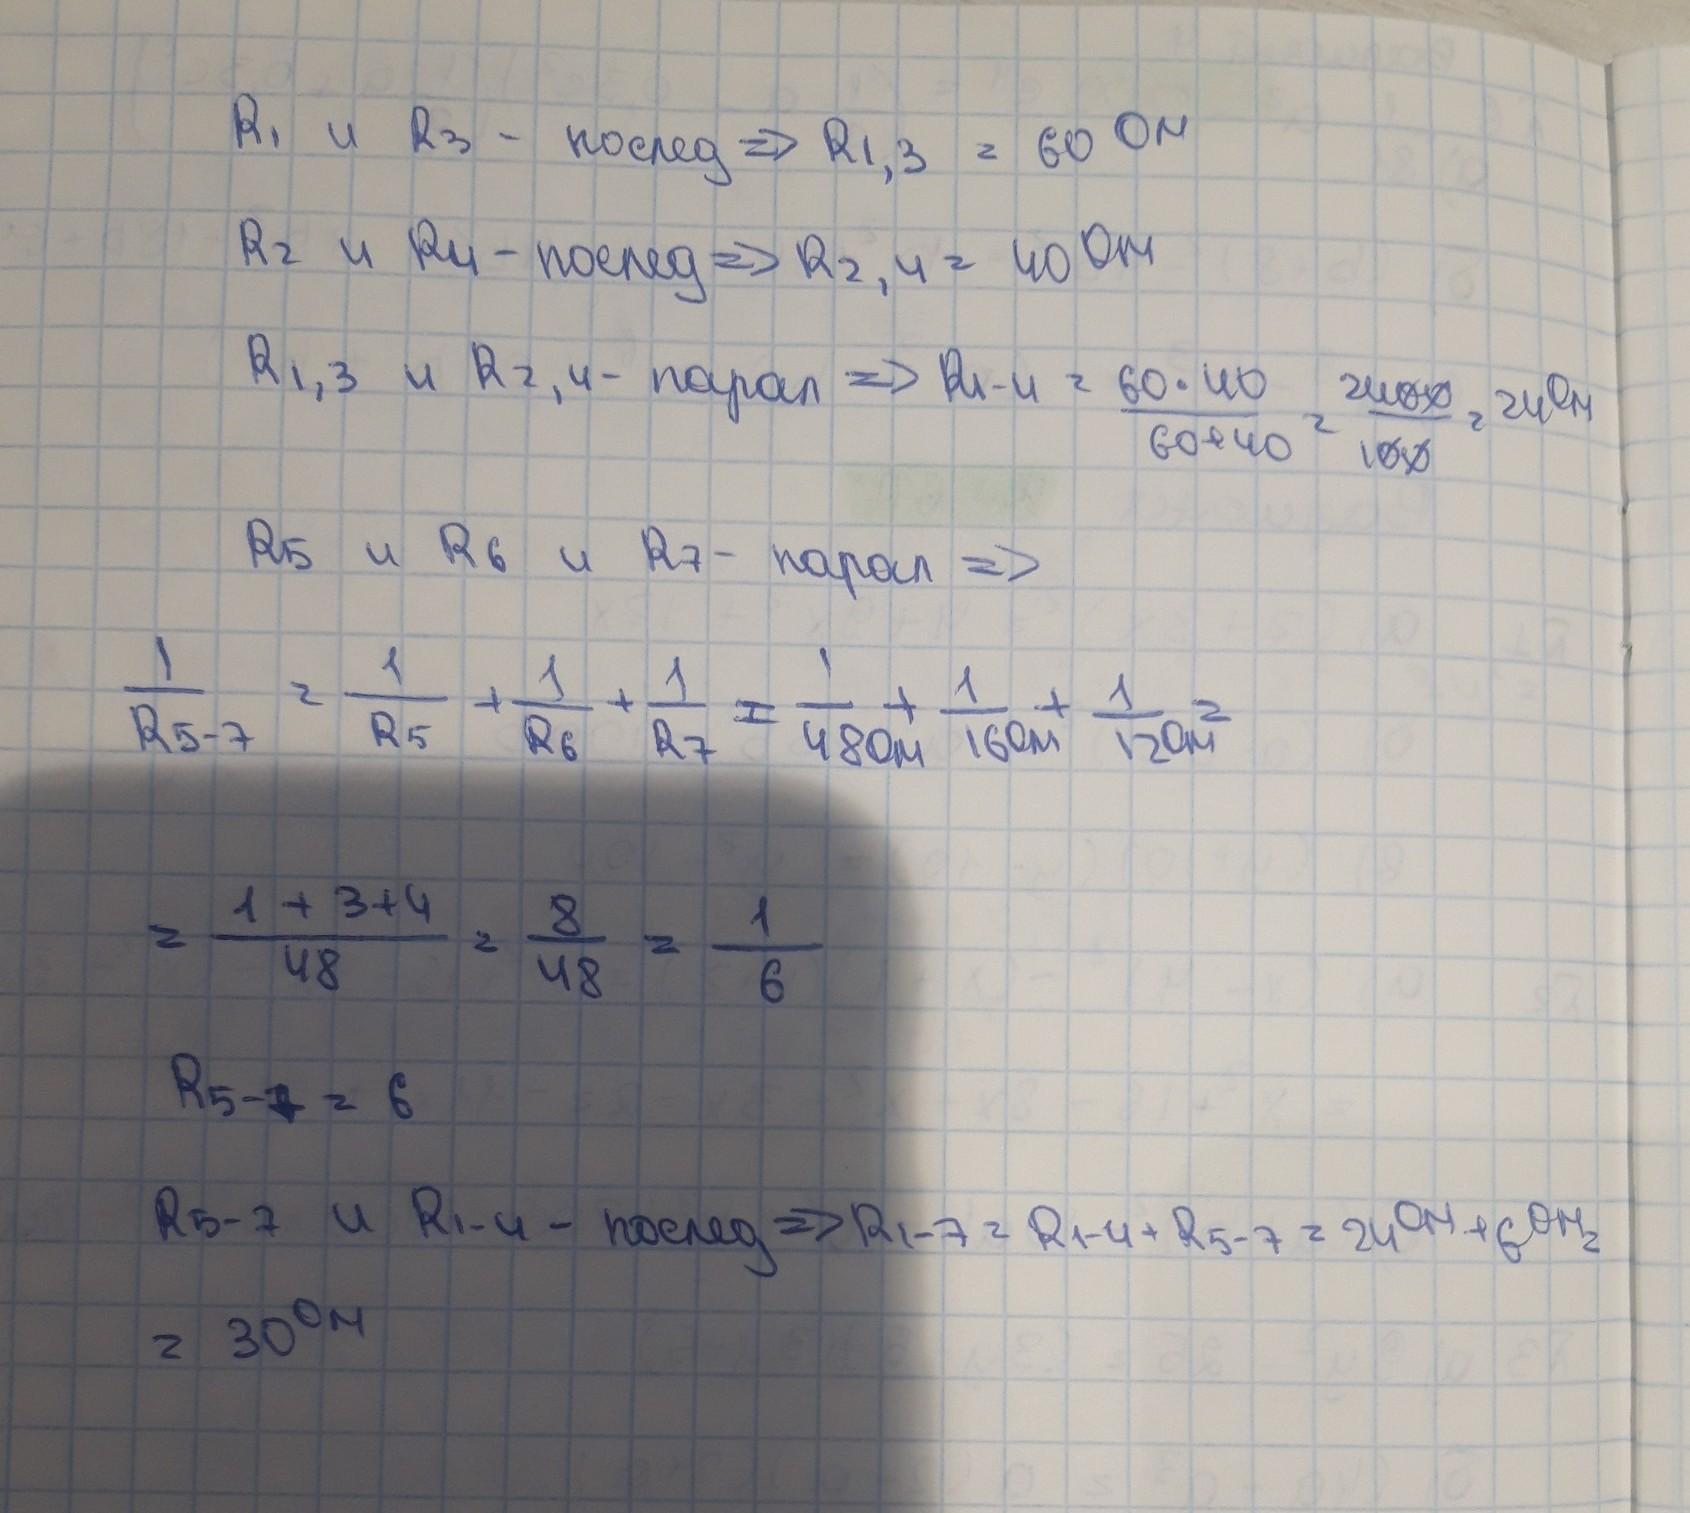 R1 и R3 - послед => R1,3 = 60 Ом
R2 и R4 - послед => R2,4 = 40 Ом
R1,3 и R2,4 - парал => R1-4 = 60·40/60+40 = 2400/100 = 24 Ом
R5 и R6 и R7 - парал =>
1/R5-7 = 1/R5 + 1/R6 + 1/R7 = 1/48 Ом + 1/16 Ом + 1/12 Ом =
= 1+3+4/48 = 8/48 = 1/6
R5-7 = 6
R5-7 и R1-4 - послед => R1-7 = R1-4 + R5-7 = 24 Ом + 6 Ом =
= 30 Ом